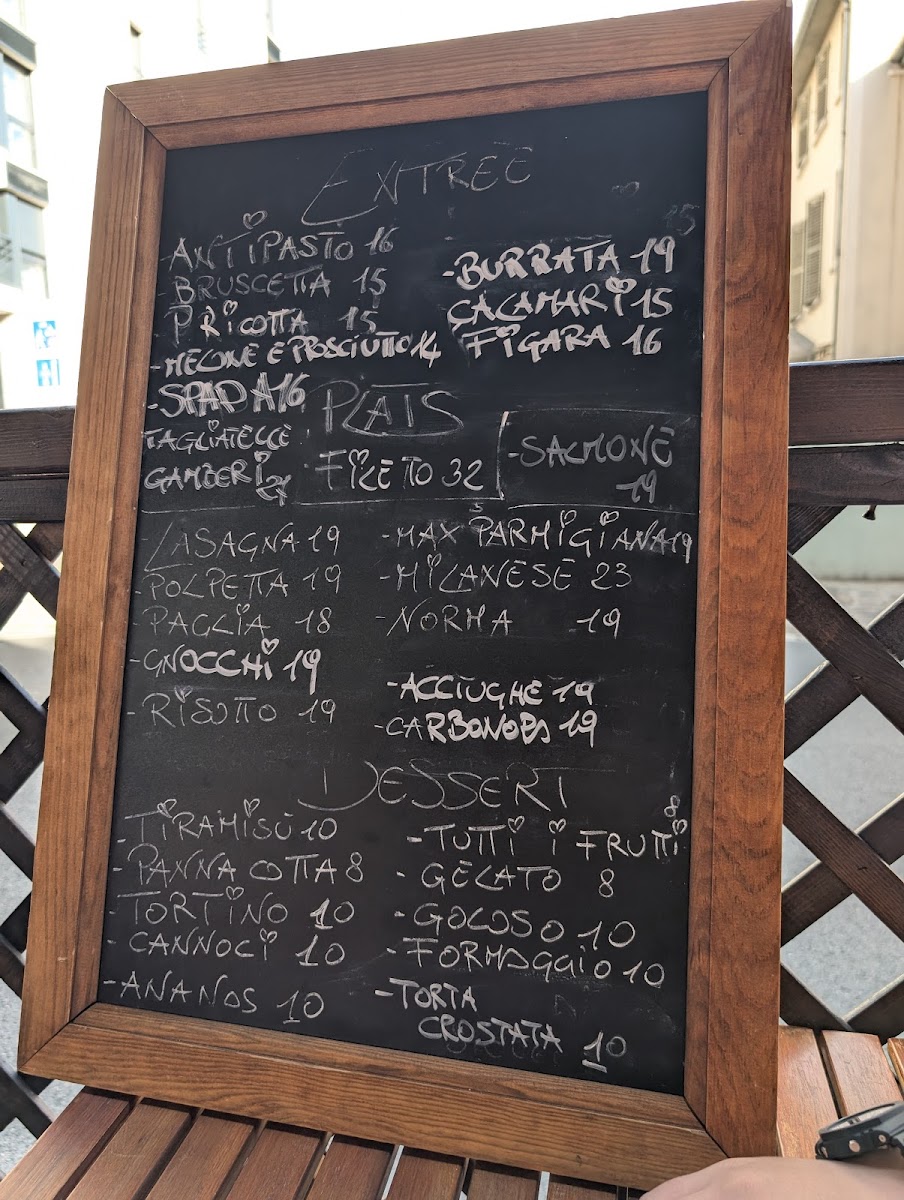 ENTREE
ANTIPASTO 16
- BRUSCETTA 15
P RICOTTA 15
- MELONE E PROSCIUTTO 14
- SPADA 16
15
- BURRATA 19
CALAMARI 15
FIGARA 16
PLATS
TAGLIATELLE
GAMBERI
- FILETTO 32
- SALMONE
19
- LASAGNA 19
- POLPETTA 19
- PAGLIA 18
- GNOCCHI 19
- RISOTTO 19
- MAX PARMIGIANA 19
- MILANESE 23
- NORMA 19
- ACCIUGHE 19
- CARBONARA 19
DESSERT
- TIRAMISÙ 10
- PANNA COTTA 8
- TORTINO 10
- CANNOLI 10
- ANANAS 10
8
- TUTTI I FRUTTI
- GELATO 8
- GOLOSO 10
- FORMAGGIO 10
- TORTA
CROSTATA 10